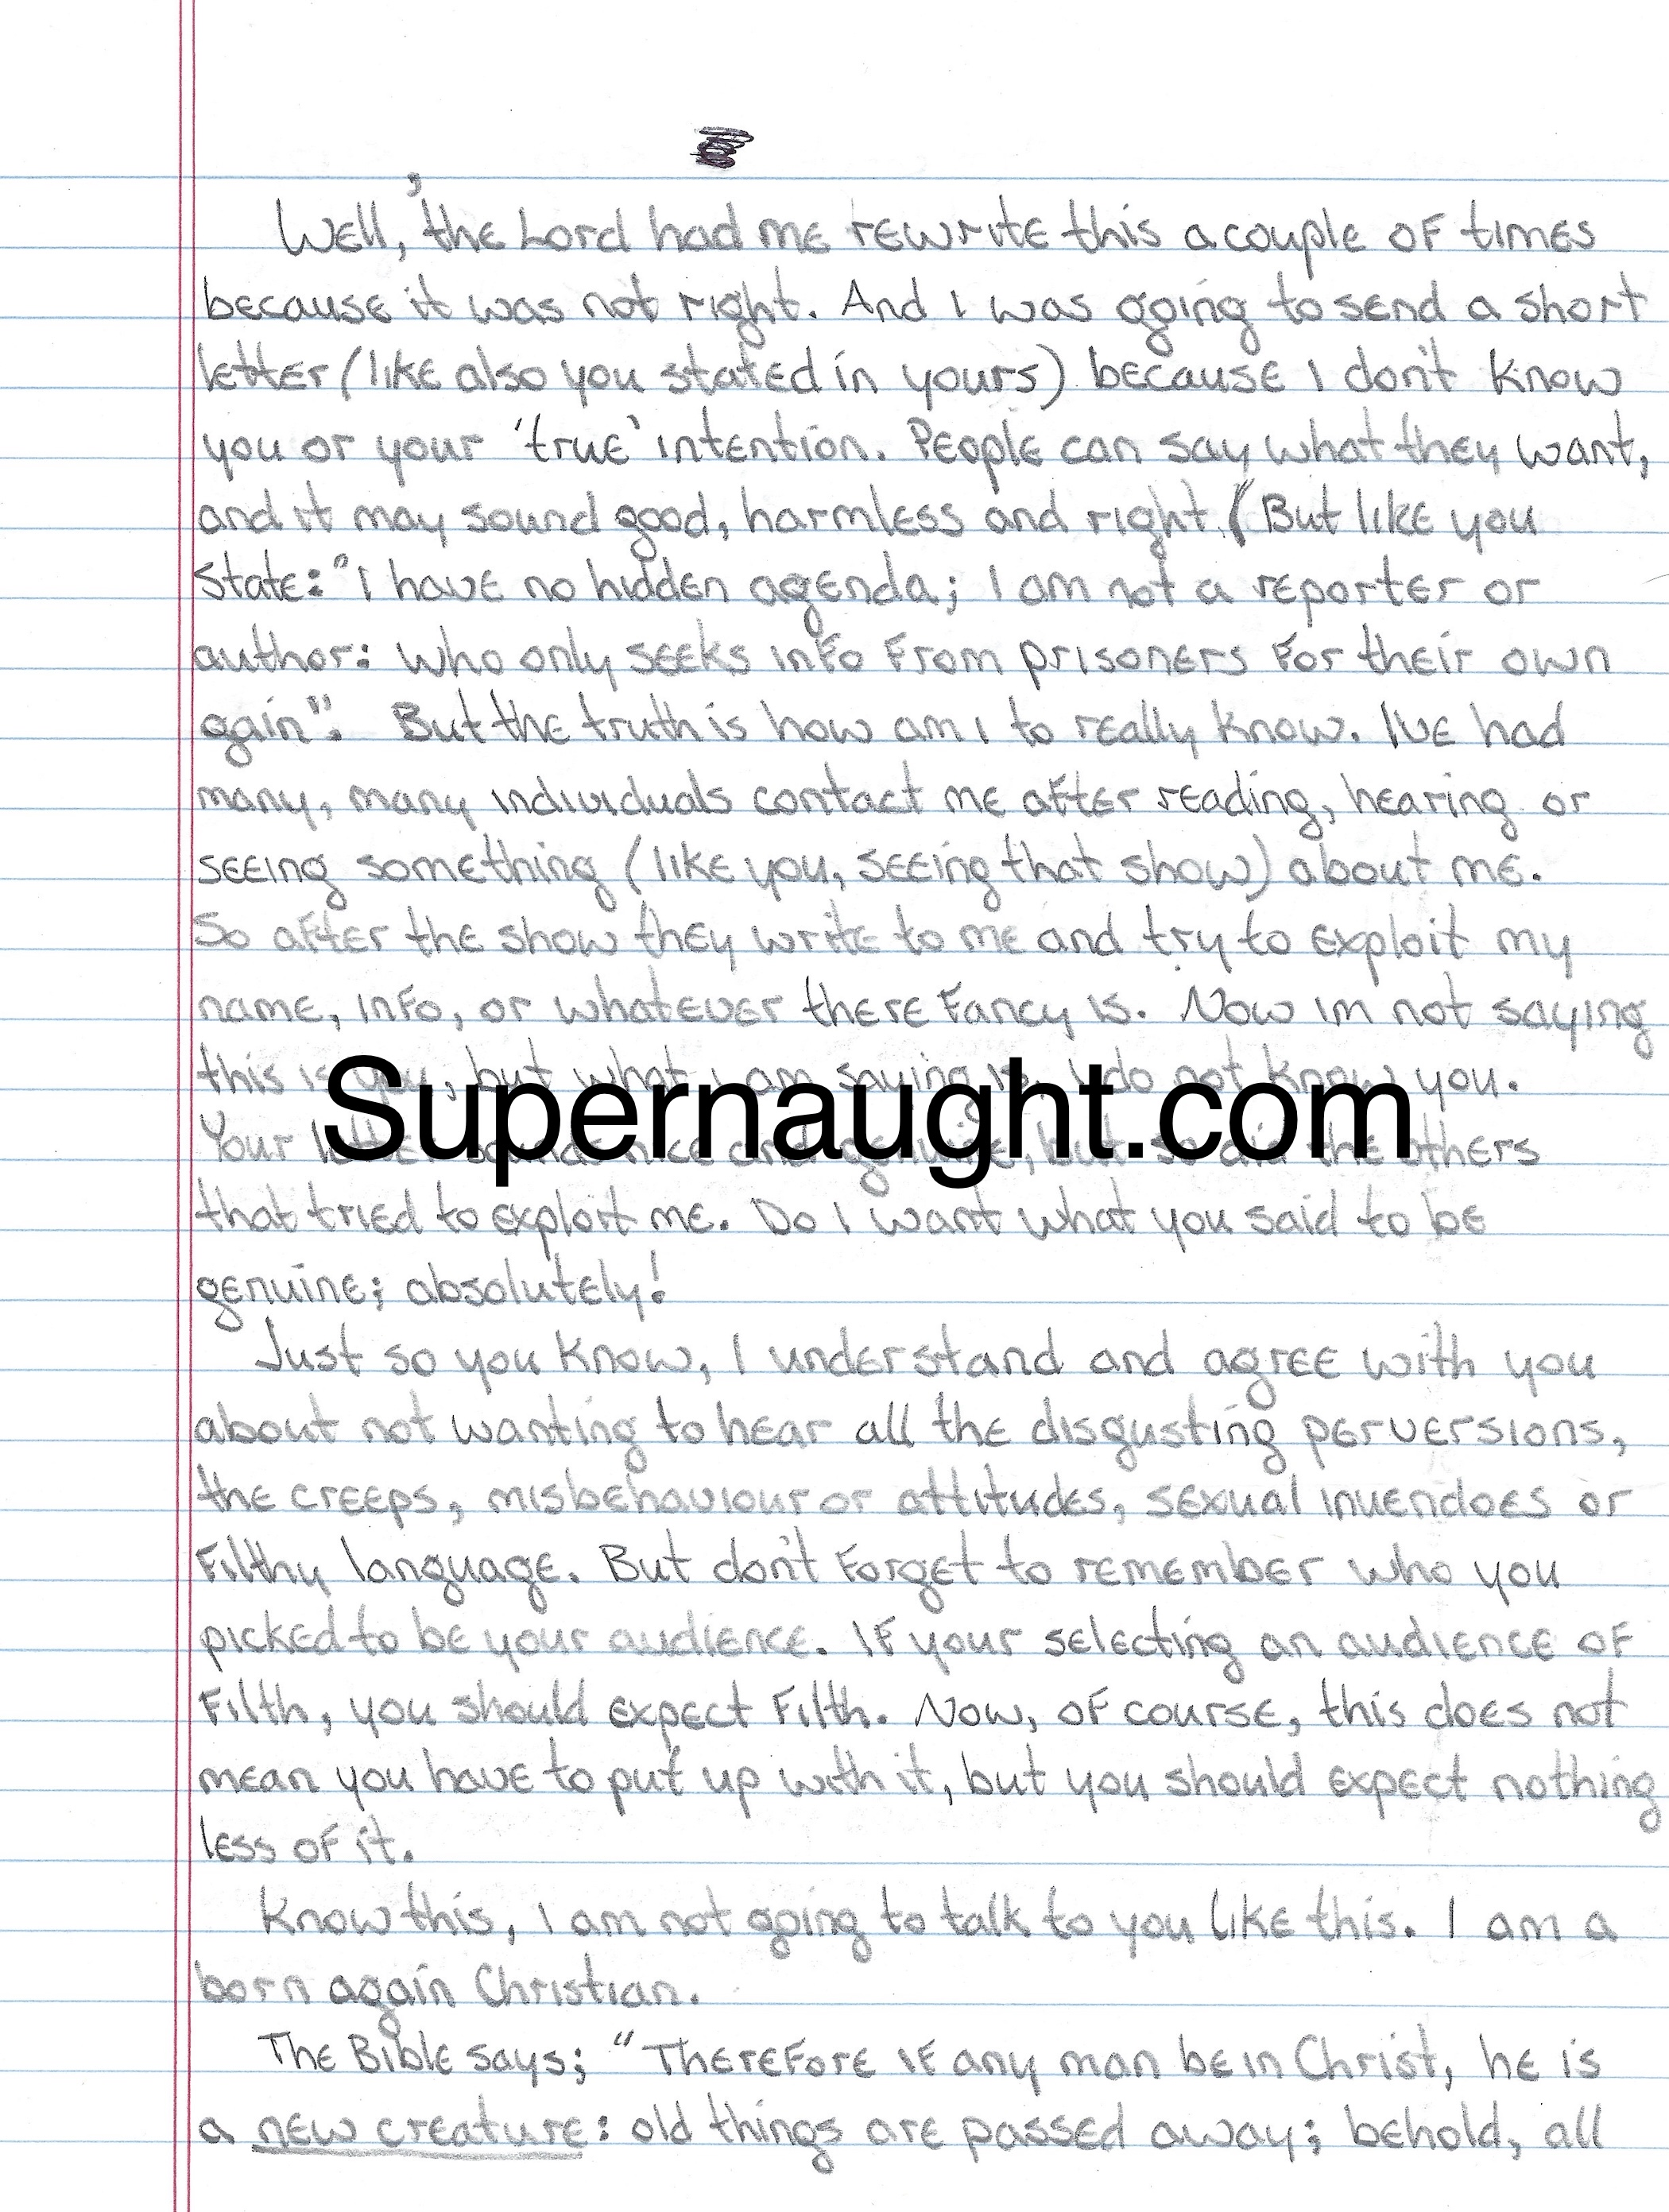 Well, the Lord had me rewrite this a couple of times
because it was not right. And I was going to send a short
letter (like also you stated in yours) because I don't know
you or your 'true' intention. People can say what they want,
and it may sound good, harmless and right. (But like you
state: "I have no hidden agenda; I am not a reporter or
author: who only seeks info from prisoners for their own
gain". But the truth is how am I to really know. I've had
many, many individuals contact me after reading, hearing or
seeing something (like you, seeing that show) about me.
So after the show they write to me and try to exploit my
name, info, or whatever there fancy is. Now im not saying
this is you, but what I am saying is, I do not know you.
Supernaught.com
Your letter sounds nice and genuine, but so did the others
that tried to exploit me. Do I want what you said to be
genuine; absolutely!
Just so you know, I understand and agree with you
about not wanting to hear all the disgusting perversions,
the creeps, misbehaviour or attitudes, sexual inuendoes or
filthy language. But don't forget to remember who you
picked to be your audience. If your selecting an audience of
filth, you should expect filth. Now, of course, this does not
mean you have to put up with it, but you should expect nothing
less of it.
Know this, I am not going to talk to you like this. I am a
born again Christian.
The Bible says; "Therefore if any man be in Christ, he is
a new creature: old things are passed away; behold, all